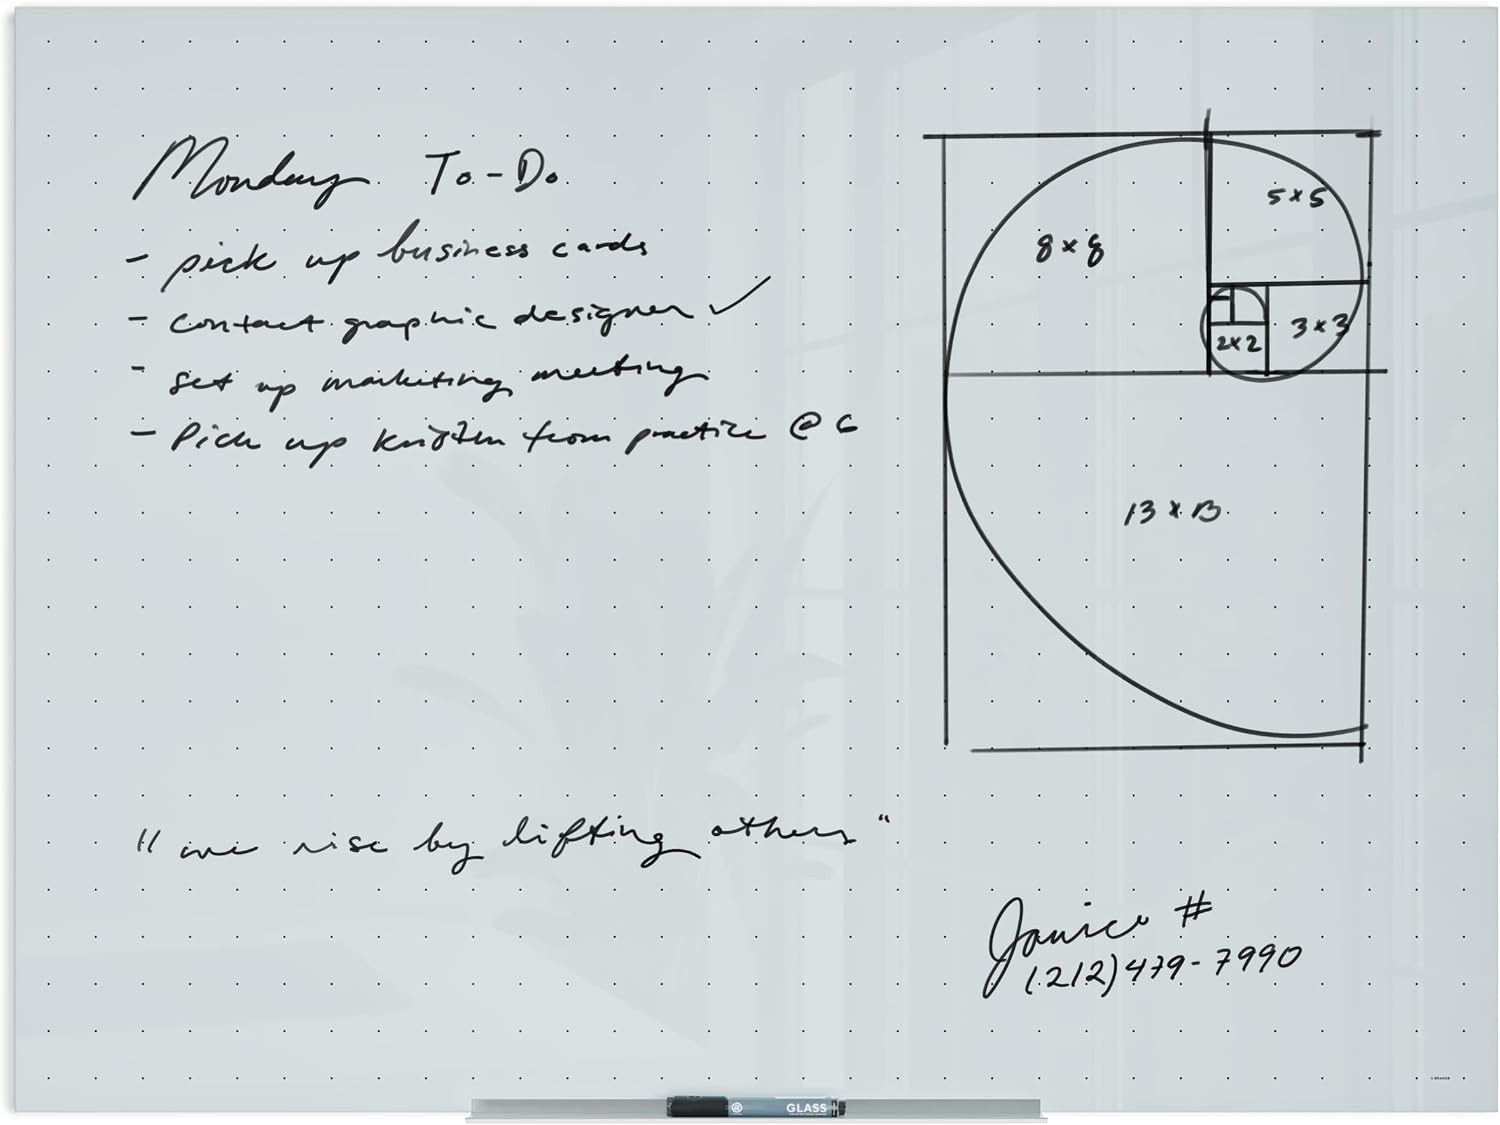 Monday To-Do
- pick up business cards
- contact graphic designer ✓
- set up marketing meeting
- Pick up kristen from practice @ 6
8 x 8
5 x 5
3 x 3
2 x 2
13 x 13
"we rise by lifting others"
Janice #
(212) 479-7990
GLASS
U BRANDS